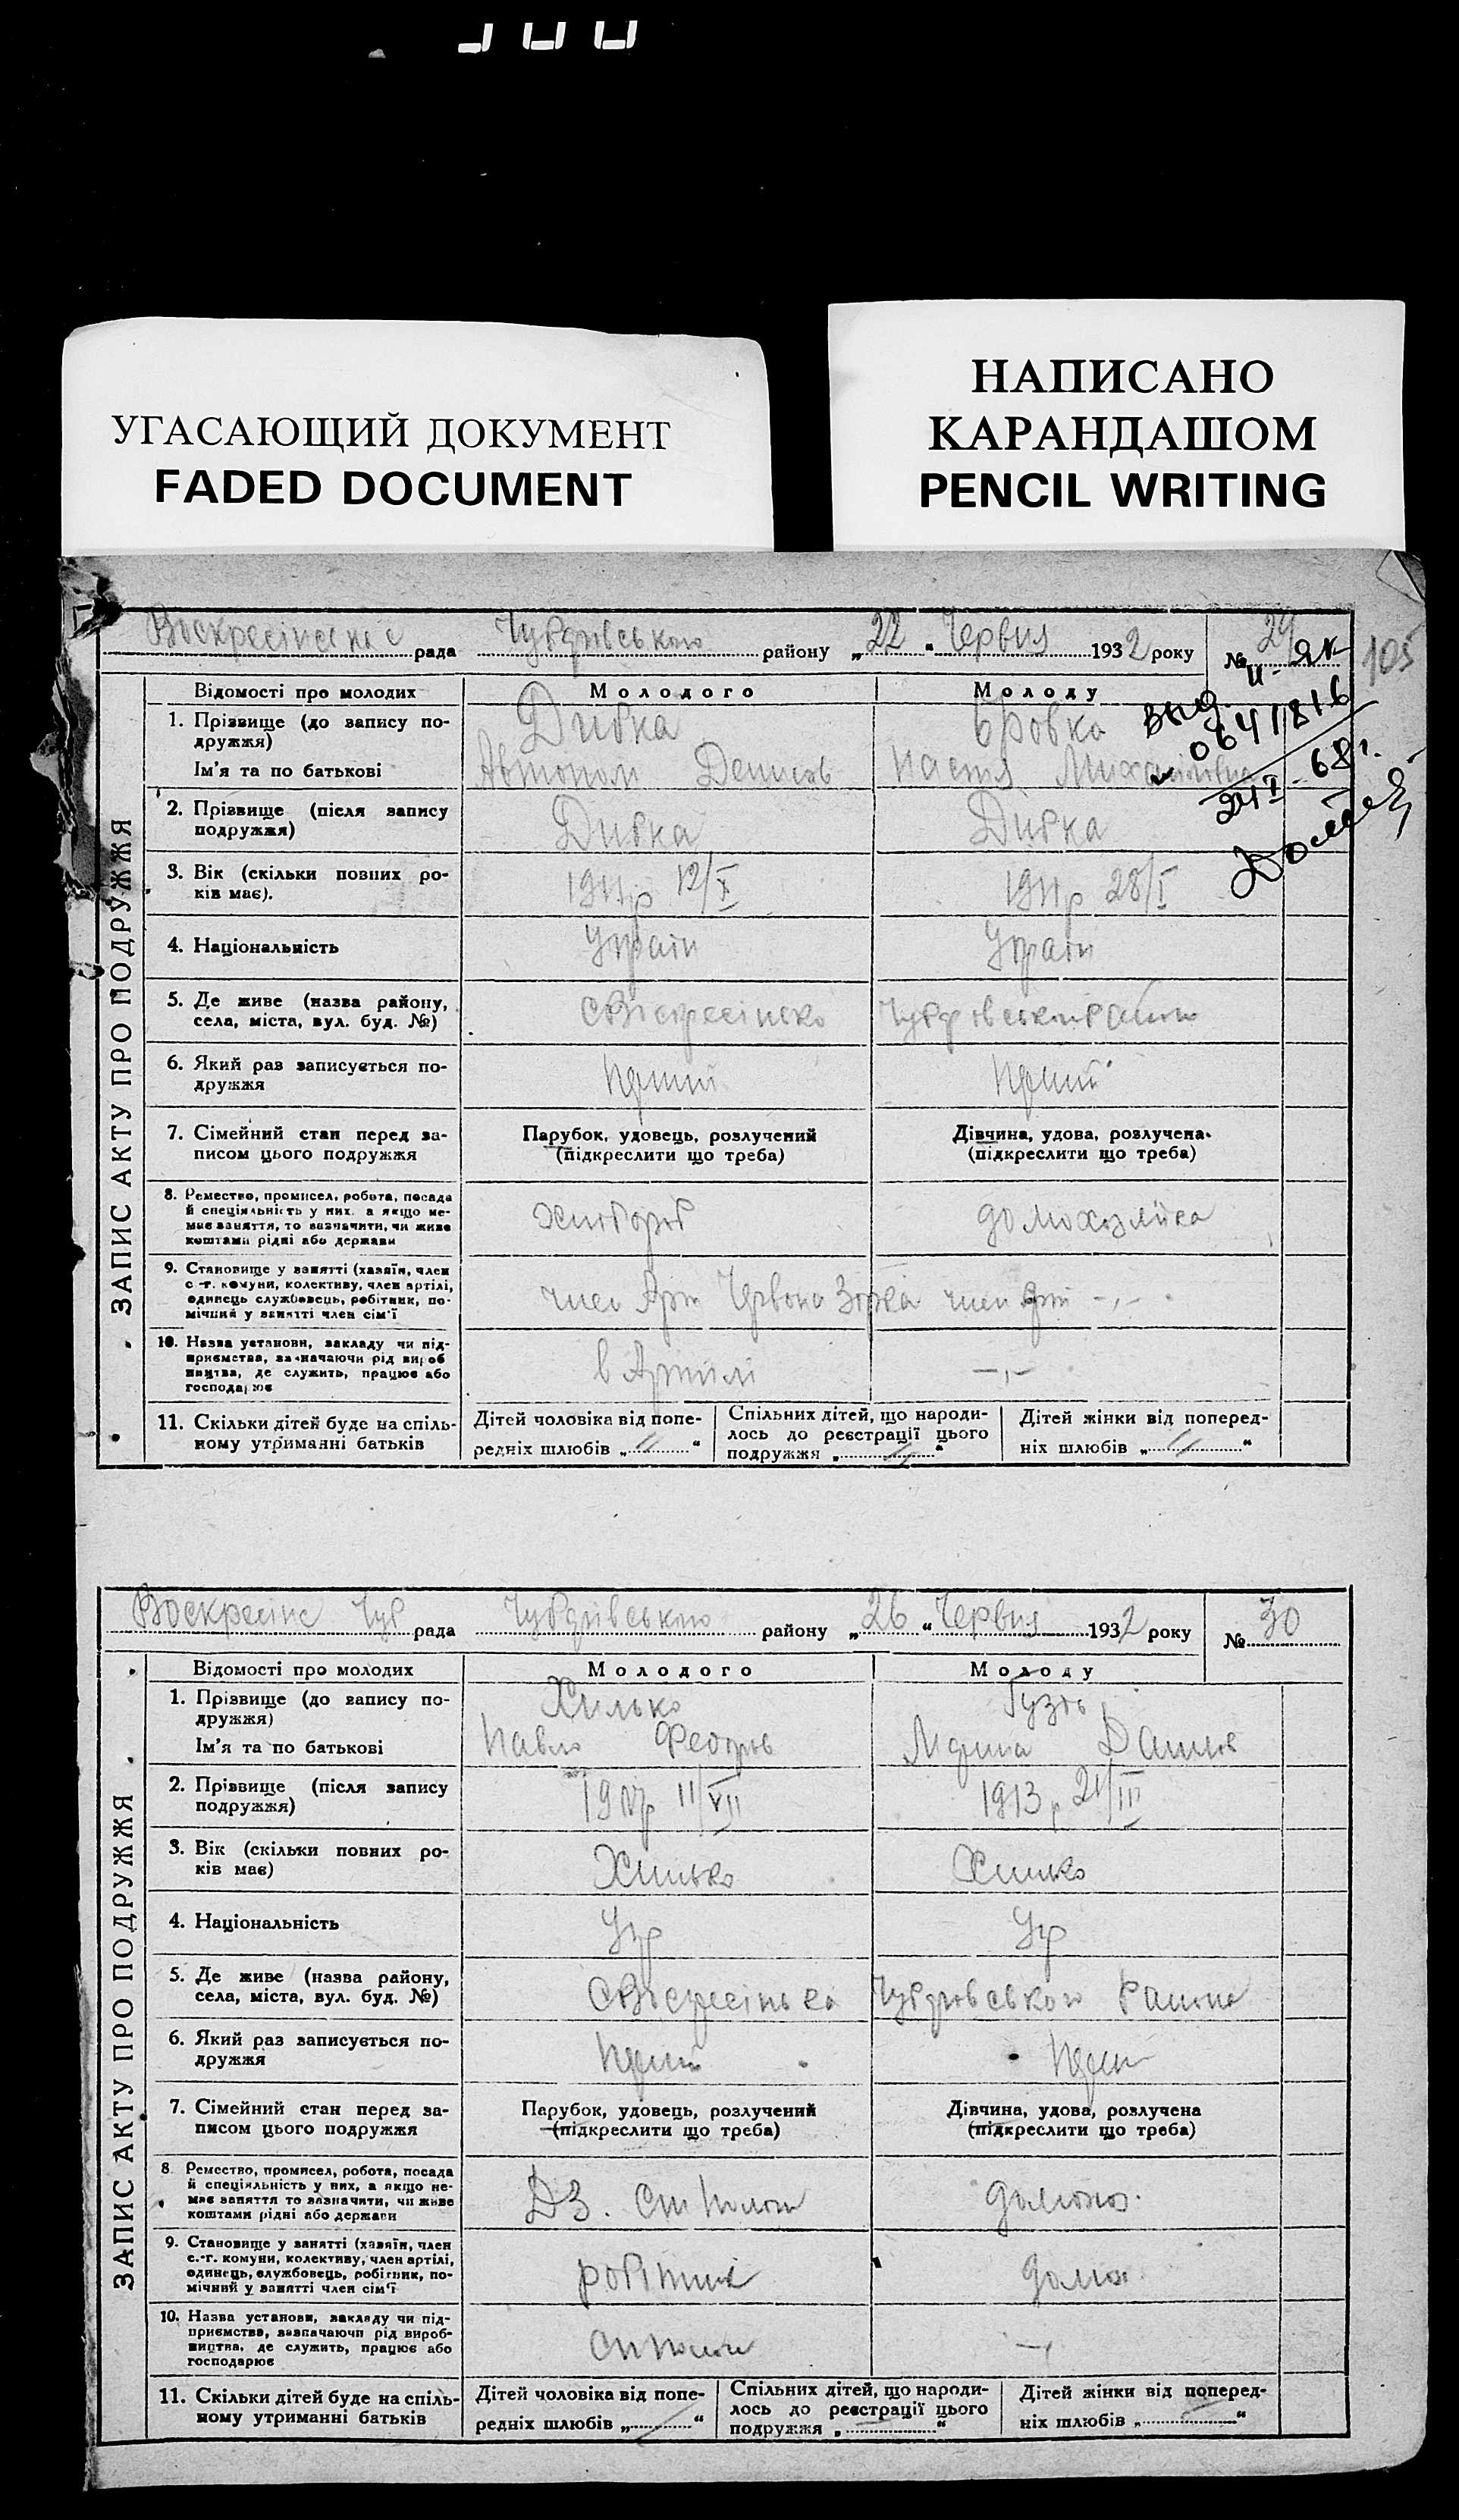 УГАСАЮЩИЙ ДОКУМЕНТ
FADED DOCUMENT
НАПИСАНО
КАРАНДАШОМ
PENCIL WRITING
рада Чубарівського району „22“ Червня 1932 року № 29
105
ЗАПИС АКТУ ПРО ПОДРУЖЖЯ
Відомості про молодих Молодого Молоду
1. Прізвище (до запису по-
дружжя) Дибка Бровка
Ім'я та по батькові Автоном Денисов Настя
0641816
68 г.
2. Прізвище (після запису
подружжя) Дибка Дибка
3. Вік (скільки повних ро-
ків має). 1911р 12/X 1911р 28/I
4. Національність Україн Україн
5. Де живе (назва району,
села, міста, вул. буд. №)
6. Який раз записується по-
дружжя
7. Сімейний стан перед за-
писом цього подружжя
Парубок, удовець, розлучений
(підкреслити що треба)
Дівчина, удова, розлучена.
(підкреслити що треба)
8. Ремество, промисел, робота, посада
й спеціяльність у них, а якщо не-
має заняття, то зазначити, чи живе
коштами рідні або держави
Хлібороб домохозяйка
9. Становище у занятті (хазяїн, член
с.-г. комуни, колективу, член артілі,
одинець службовець, робітник, по-
мічний у занятті член сім'ї
член Арт Червона Зірка член Арт -„-
10. Назва установи, закладу чи під-
приємства, зазначаючи рід вироб
ництва, де служить, працює або
господарює
в Артилі -„-
11. Скільки дітей буде на спіль-
ному утриманні батьків
Дітей чоловіка від попе-
редніх шлюбів „ “
Спільних дітей, що народи-
лось до реєстрації цього
подружжя „ “
Дітей жінки від поперед-
ніх шлюбів „ “
Воскресінс рада Чубарівського району „26“ Червня 1932 року № 30
ЗАПИС АКТУ ПРО ПОДРУЖЖЯ
Відомості про молодих Молодого Молоду
1. Прізвище (до запису по-
дружжя) Хилько Гузь
Ім'я та по батькові Павло Федоров
2. Прізвище (після запису
подружжя) 11/XII 1913 р 21/III
3. Вік (скільки повних ро-
ків має) Хилько Хилко
4. Національність Укр Укр
5. Де живе (назва району,
села, міста, вул. буд. №) Чубарівського Района
6. Який раз записується по-
дружжя
7. Сімейний стан перед за-
писом цього подружжя
Парубок, удовець, розлучений
(підкреслити що треба)
Дівчина, удова, розлучена
(підкреслити що треба)
8. Ремество, промисел, робота, посада
й спеціяльність у них, а якщо не-
має заняття то зазначити, чи живе
коштами рідні або держави
9. Становище у занятті (хазяїн, член
с.-г. комуни, колективу, член артілі,
одинець, службовець, робітник, по-
мічний у занятті член сім'ї
робітник
10. Назва установи, закладу чи під-
приємства, зазначаючи рід вироб-
ництва, де служить, працює або
господарює
11. Скільки дітей буде на спіль-
ному утриманні батьків
Дітей чоловіка від попе-
редніх шлюбів „ “
Спільних дітей, що народи-
лось до реєстрації цього
подружжя „ “
Дітей жінки від поперед-
ніх шлюбів „ “